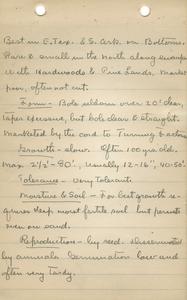 Best in E. Tex. & S. Ark. on Bottoms.
Rare & small in the north along swamps
with Hardwoods & Pine Lands. Market
poor, often not cut.
Form - Bole seldom over 20' clear,
taper excessive, but bole clear & straight.
Marketed by the cord to Turning Factories
Growth - slow. Often 100 yrs old.
Max. 2½'-80'. Usually 12-16", 40-50'.
Tolerance - Very Tolerant.
Moisture & Soil - For best growth re-
quires deep moist fertile soil but persists
even on sand.
Reproduction - by seed. Disseminated
by animals. Germination low and
often very tardy.